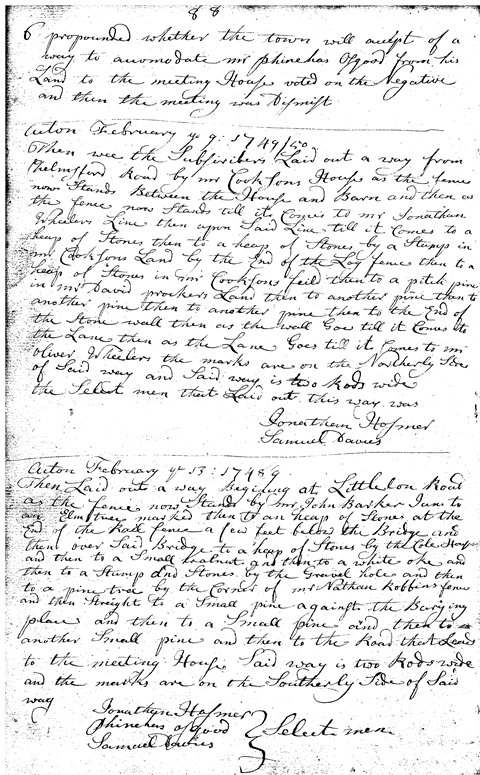 88
6 propounded whether the town will accept of a
way to acomodate mr Phinehas Osgood from his
Land to the meeting House voted on the Negative
and then the meeting was Dismist
Acton February ye 9: 1749/50
Then wee the Subscribers Laid out a way from
Chelmsford Road by mr Cooksons House as the fence
now Stands Between the House and Barn and then as
the fence now Stands till it Comes to mr Jonathan
Wheelers Line then upon Said Line till it Comes to a
heap of Stones then to a heap of Stones by a Stump in
mr Cooksons Land by the End of the Log fence then to a
heap of Stones in mr Cooksons feild then to a pitch pine
in mr David procters Land then to another pine then to
another pine then to another pine then to the End of
the Stone wall then as the wall Goes till it Comes to
the Lane then as the Lane Goes till it Comes to mr
oliver Wheelers the marks are on the Northerly Side
of Said way and Said way is two Rods wide
the Select men that Laid out this way was
Jonathan Hosmer
Samuel Davies
Acton February ye 13: 17489
Then Laid out a way begining at Littleton Road
as the fence now Stands by mr John Barker Junr to
an Elm tree marked then to an heap of Stones at the
End of the Rail fence a few feet below the Bridge and
then over Said Bridge to a heap of Stones by the Cole House
and then to a Small walnut and then to a white oke and
then to a Stump and Stones by the Gravel hole and then
to a pine tree by the Corner of mr Nathan Robbins fence
and then Streight to a Small pine against the Burying
place and then to a Small pine and then to
another Small pine and then to the Road that Leads
to the meeting House Said way is two Rods wide
and the marks are on the Southerly Side of Said
way
Jonathan Hosmer
phinehas osgood
Samuel Davies
Select men